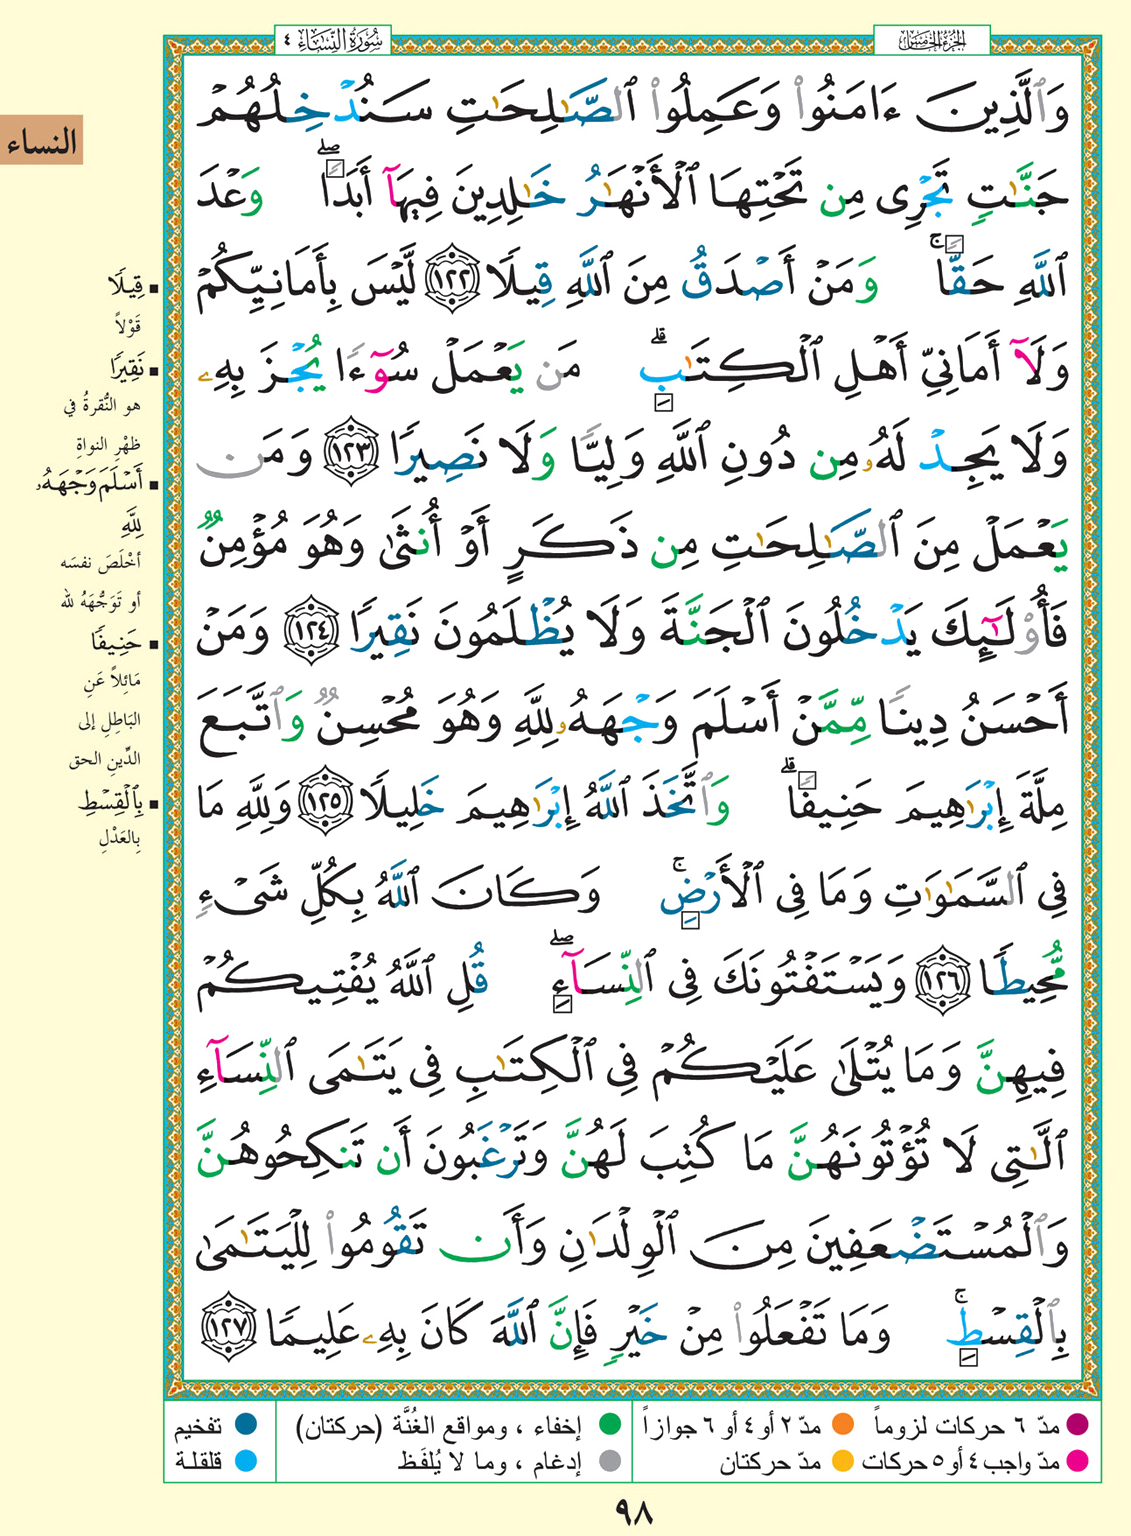 سُورَةُ النِّسَاء ٤
الجزء الخامس
وَٱلَّذِينَ ءَامَنُوا۟ وَعَمِلُوا۟ ٱلصَّـٰلِحَـٰتِ سَنُدْخِلُهُمْ
جَنَّـٰتٍ تَجْرِى مِن تَحْتِهَا ٱلْأَنْهَـٰرُ خَـٰلِدِينَ فِيهَآ أَبَدًا ۖ وَعْدَ
ٱللَّهِ حَقًّا ۚ وَمَنْ أَصْدَقُ مِنَ ٱللَّهِ قِيلًا ١٢٢ لَّيْسَ بِأَمَانِيِّكُمْ
وَلَآ أَمَانِىِّ أَهْلِ ٱلْكِتَـٰبِ ۗ مَن يَعْمَلْ سُوٓءًا يُجْزَ بِهِۦ
وَلَا يَجِدْ لَهُۥ مِن دُونِ ٱللَّهِ وَلِيًّا وَلَا نَصِيرًا ١٢٣ وَمَن
يَعْمَلْ مِنَ ٱلصَّـٰلِحَـٰتِ مِن ذَكَرٍ أَوْ أُنثَىٰ وَهُوَ مُؤْمِنٌ
فَأُو۟لَـٰٓئِكَ يَدْخُلُونَ ٱلْجَنَّةَ وَلَا يُظْلَمُونَ نَقِيرًا ١٢٤ وَمَنْ
أَحْسَنُ دِينًا مِّمَّنْ أَسْلَمَ وَجْهَهُۥ لِلَّهِ وَهُوَ مُحْسِنٌ وَٱتَّبَعَ
مِلَّةَ إِبْرَٰهِيمَ حَنِيفًا ۗ وَٱتَّخَذَ ٱللَّهُ إِبْرَٰهِيمَ خَلِيلًا ١٢٥ وَلِلَّهِ مَا
فِى ٱلسَّمَـٰوَٰتِ وَمَا فِى ٱلْأَرْضِ ۚ وَكَانَ ٱللَّهُ بِكُلِّ شَىْءٍ
مُّحِيطًا ١٢٦ وَيَسْتَفْتُونَكَ فِى ٱلنِّسَآءِ ۖ قُلِ ٱللَّهُ يُفْتِيكُمْ
فِيهِنَّ وَمَا يُتْلَىٰ عَلَيْكُمْ فِى ٱلْكِتَـٰبِ فِى يَتَـٰمَى ٱلنِّسَآءِ
ٱلَّـٰتِى لَا تُؤْتُونَهُنَّ مَا كُتِبَ لَهُنَّ وَتَرْغَبُونَ أَن تَنكِحُوهُنَّ
وَٱلْمُسْتَضْعَفِينَ مِنَ ٱلْوِلْدَٰنِ وَأَن تَقُومُوا۟ لِلْيَتَـٰمَىٰ
بِٱلْقِسْطِ ۚ وَمَا تَفْعَلُوا۟ مِنْ خَيْرٍ فَإِنَّ ٱللَّهَ كَانَ بِهِۦ عَلِيمًا ١٢٧
النساء
قِيلًا
قَوْلاً
نَقِيرًا
هو النُّقرةُ في
ظهْرِ النواةِ
أَسْلَمَ وَجْهَهُۥ
لِلَّهِ
أخْلَصَ نفسَه
أو تَوَجُّهَهُ لله
حَنِيفًا
مَائِلاً عَنِ
البَاطِلِ إلى
الدِّينِ الحق
بِٱلْقِسْطِ
بِالعَدْلِ
مدّ ٦ حركات لزوماً
مدّ ٢ أو ٤ أو ٦ جوازاً
إخفاء ، ومواقع الغُنَّة (حركتان)
تفخيم
مدّ واجب ٤ أو ٥ حركات
مدّ حركتان
إدغام ، وما لا يُلفَظ
قلقلة
٩٨